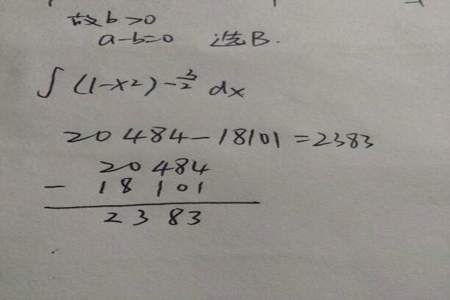 故b>0
a-b=0 选B.
∫(1-x²)-3/2 dx
20484-18101=2383
20484
- 18101
2383